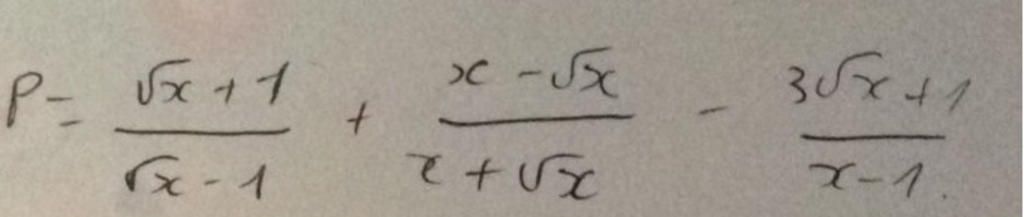 P = \frac{\sqrt{x}+1}{\sqrt{x}-1} + \frac{x-\sqrt{x}}{x+\sqrt{x}} - \frac{3\sqrt{x}+1}{x-1}.